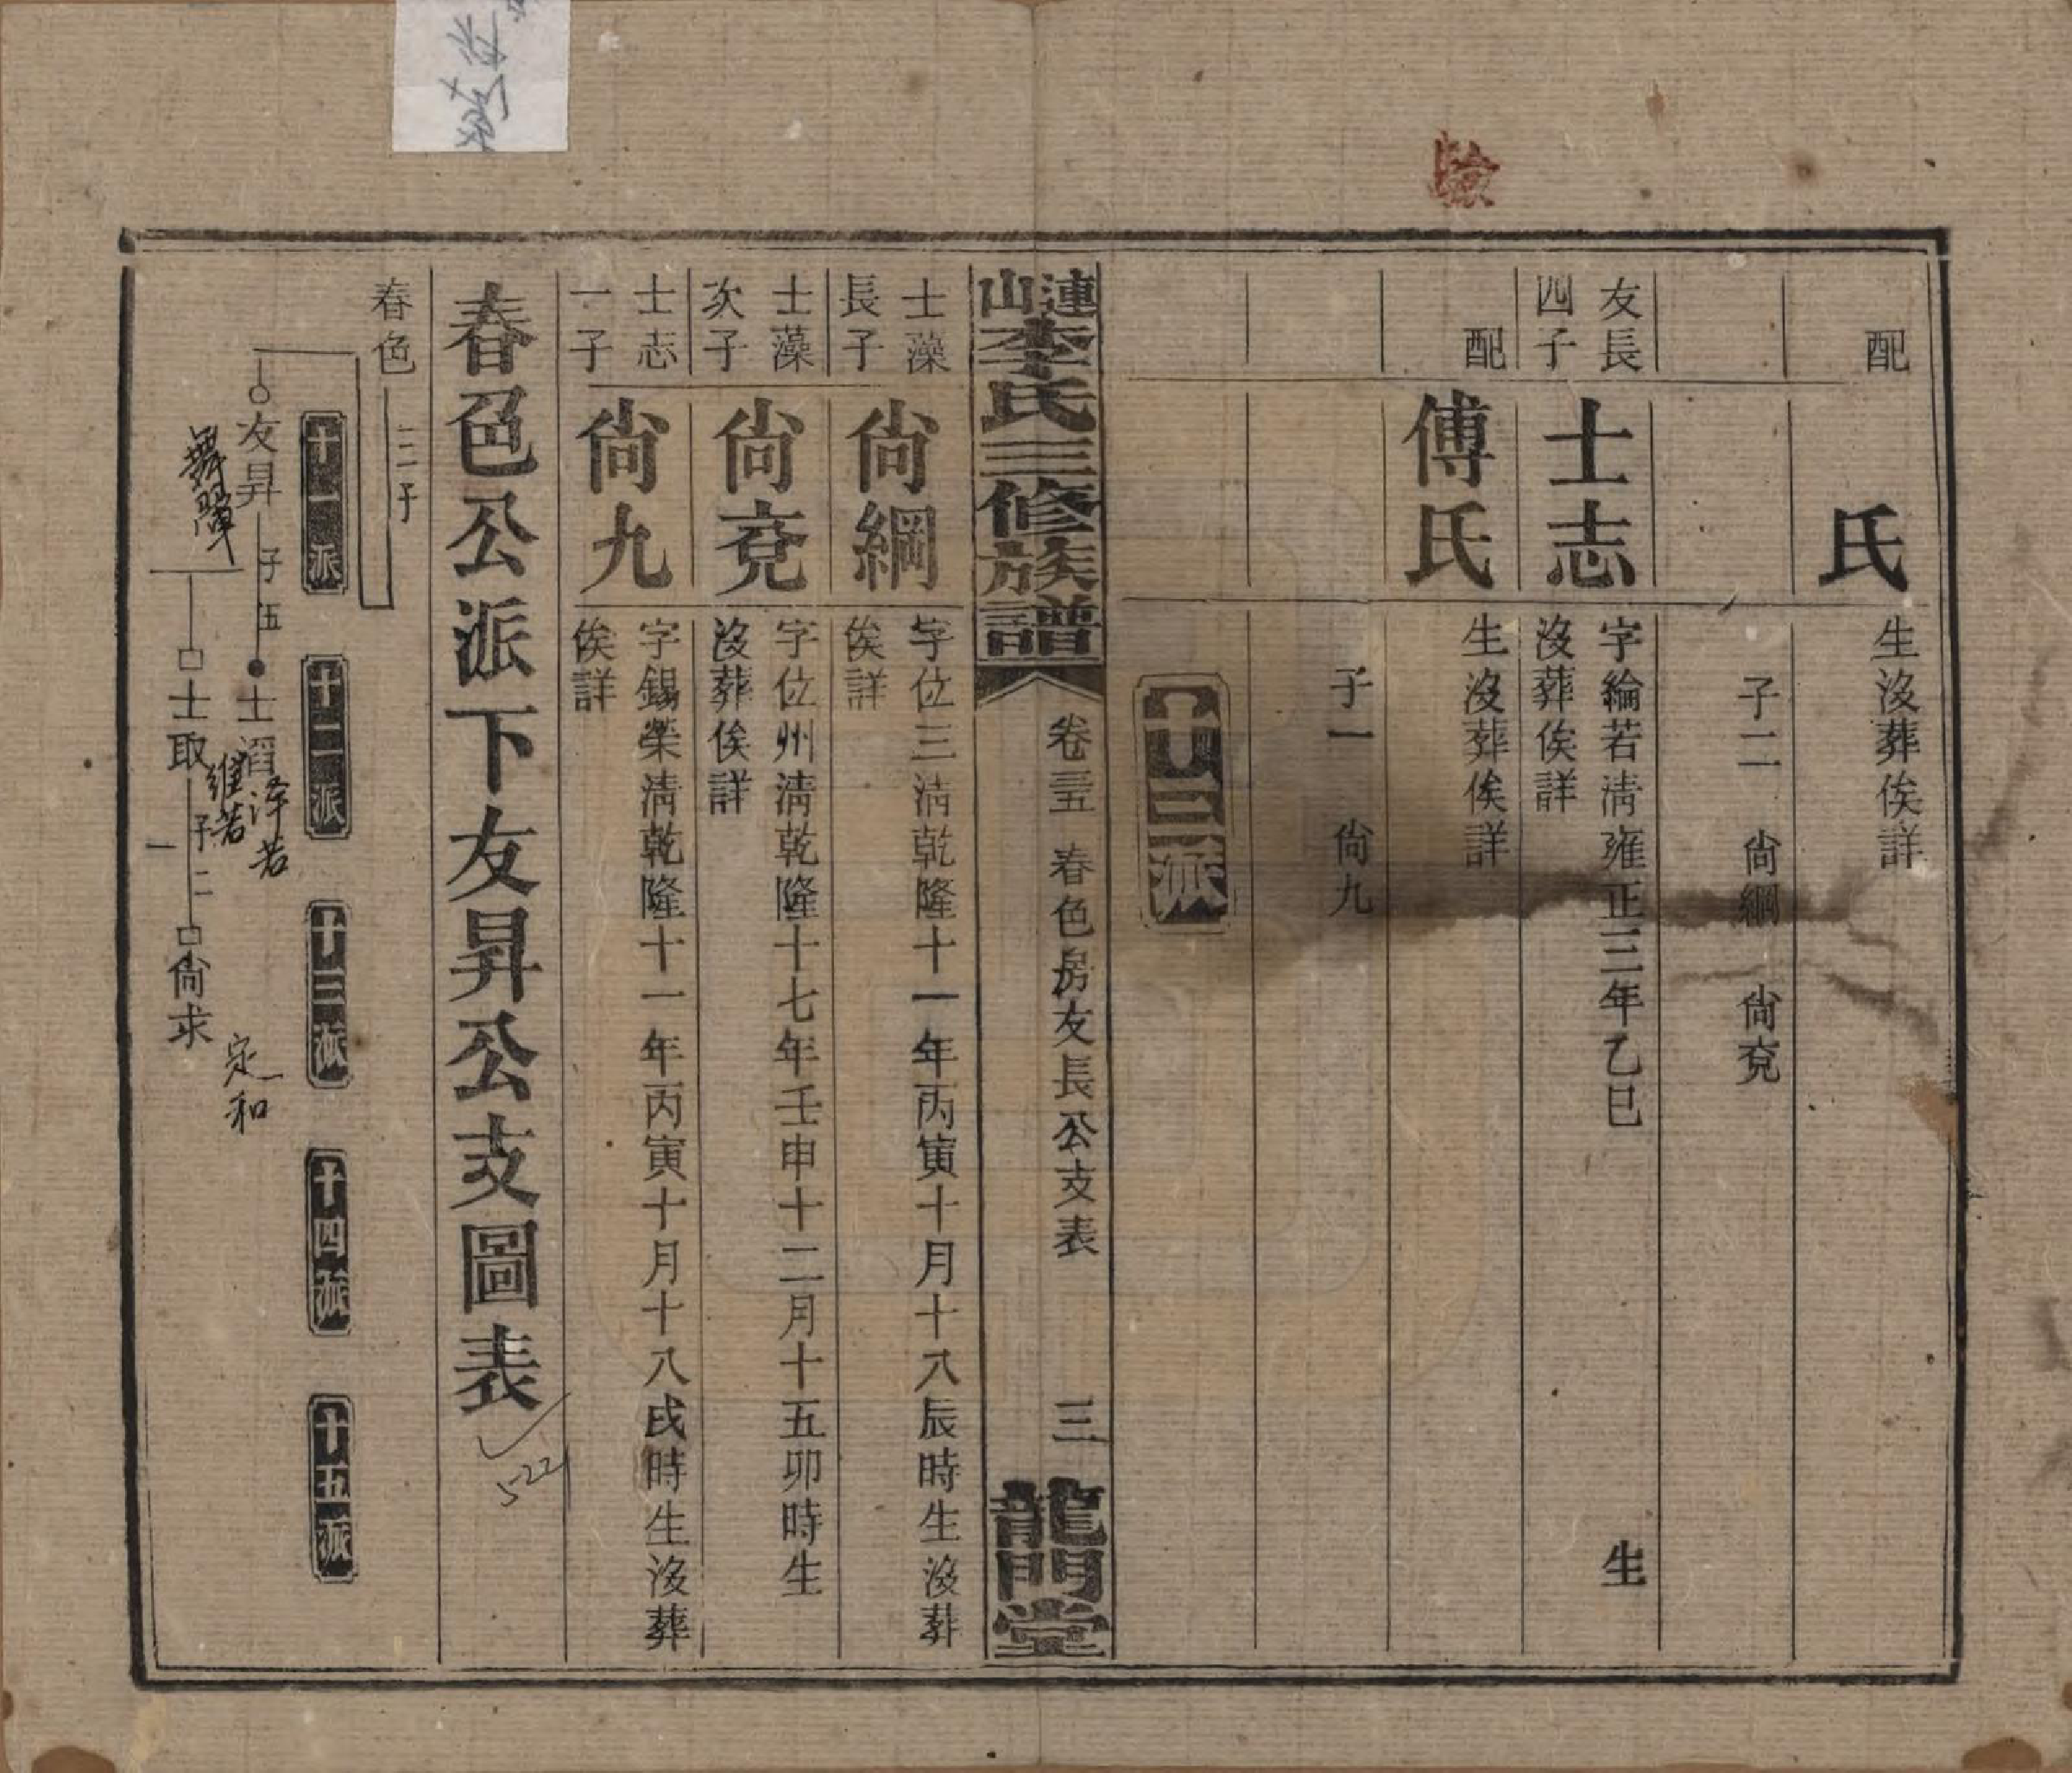 配 氏 生沒葬俟詳
子二 尙綱 尙兗
友長四子 士志 字綸若淸雍正三年乙巳 生沒葬俟詳
配 傅氏 生沒葬俟詳
子一 尙九
十三派
漣山李氏三修族譜 卷三十五 春色房友長公支表 三 龍門堂
士藻長子 尙綱 字位三淸乾隆十一年丙寅十月十八辰時生沒葬俟詳
士藻次子 尙兗 字位州淸乾隆十七年壬申十二月十五卯時生沒葬俟詳
士志一子 尙九 字錫榮淸乾隆十一年丙寅十月十八戌時生沒葬俟詳
春色公派下友昇公支圖表
522
春色 三子
十一派 十二派 十三派 十四派 十五派
友昇 子五 士滔 泽若
士取 維若 子二 尙求 定和
一
驗